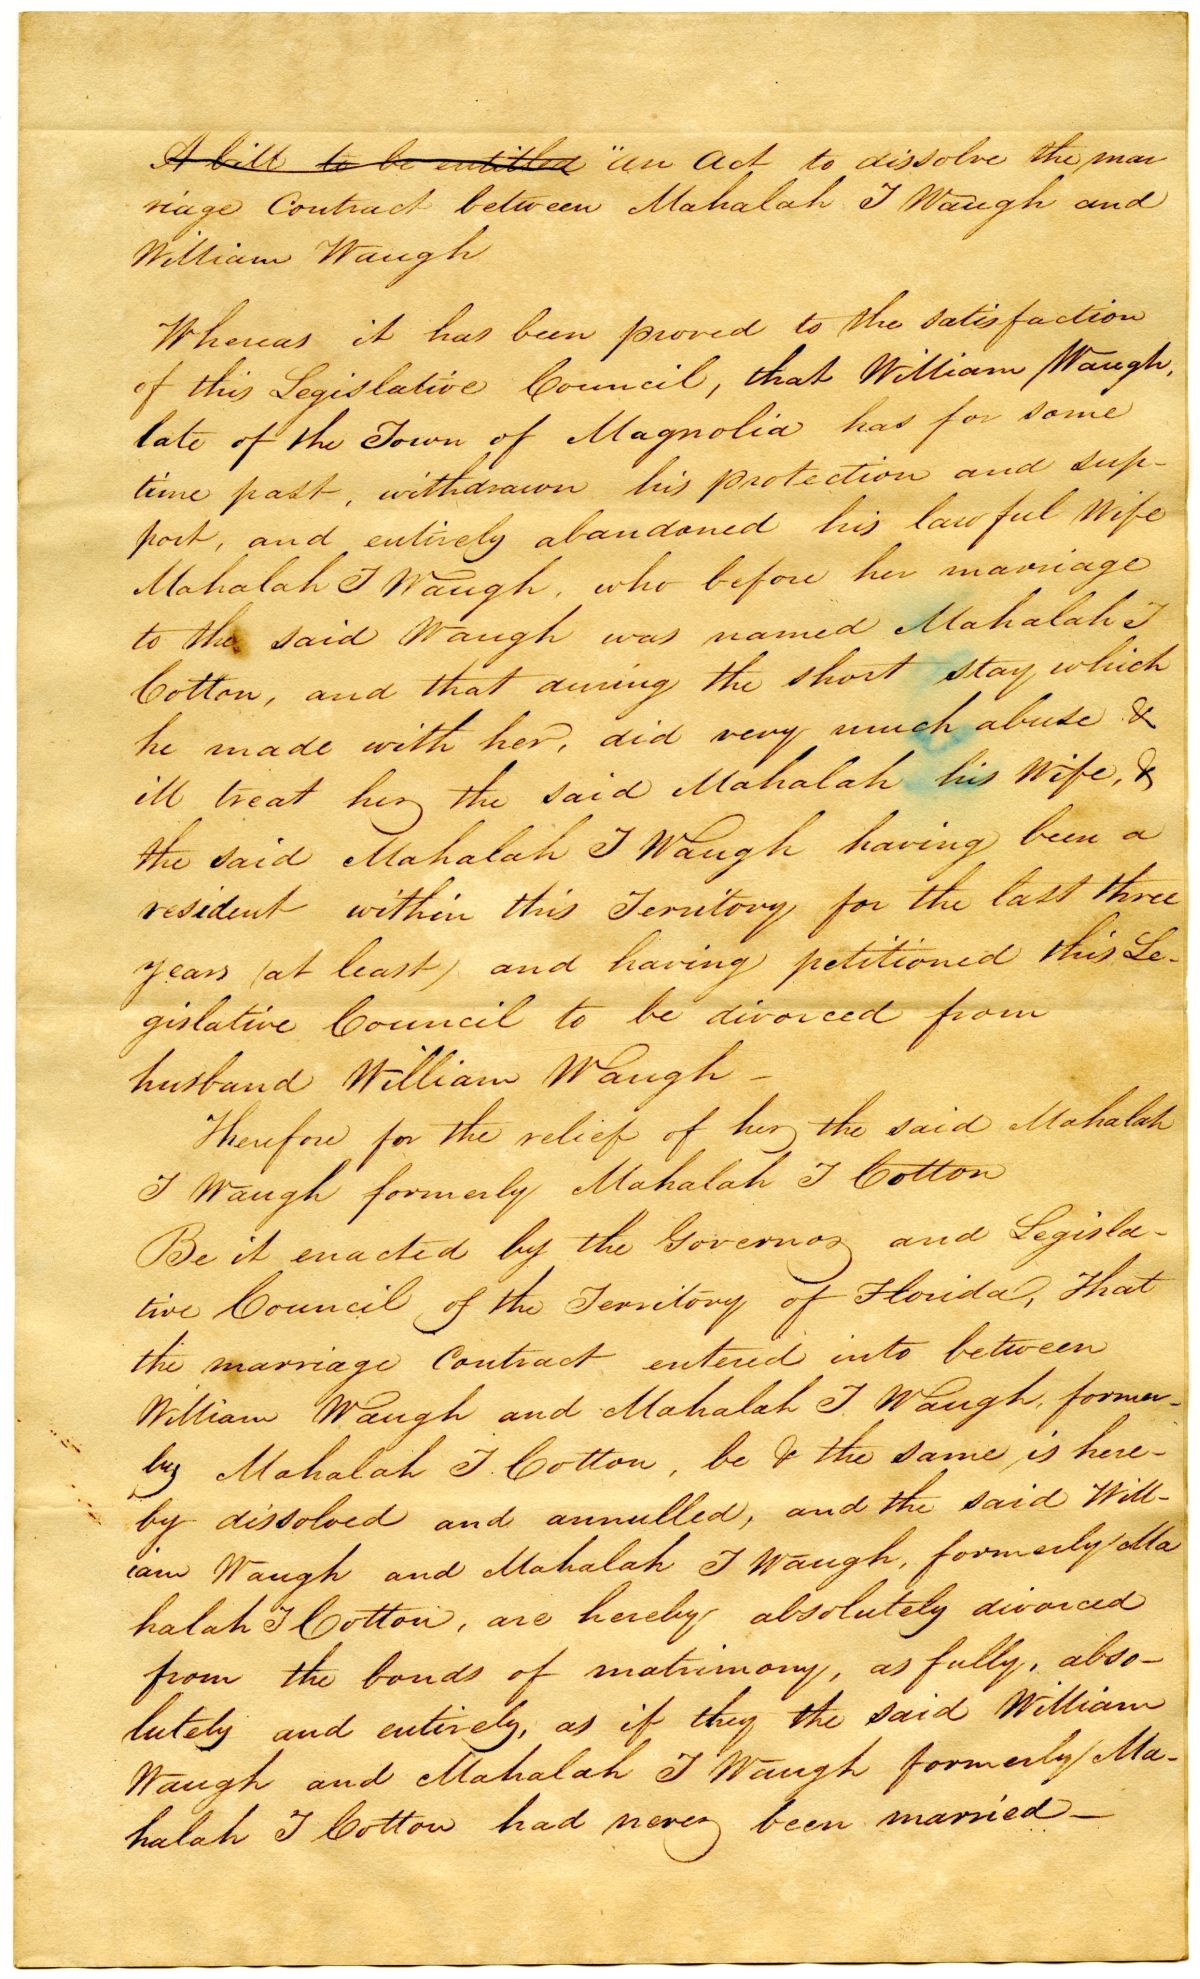 A bill to be entitled "An Act to dissolve the mar
riage Contract between Mahalah J Waugh and
William Waugh
Whereas it has been proved to the satisfaction
of this Legislative Council, that William Waugh,
late of the Town of Magnolia has for some
time past, withdrawn his protection and sup-
port, and entirely abandoned his lawful Wife
Mahalah J Waugh, who before her marriage
to the said Waugh was named Mahalah J
Cotton, and that during the short stay which
he made with her, did very much abuse &
ill treat her the said Mahalah his Wife, &
the said Mahalah J Waugh having been a
resident within this Territory for the last three
years (at least) and having petitioned this Le-
gislative Council to be divorced from
husband William Waugh –
Therefore for the relief of her the said Mahalah
J Waugh formerly Mahalah J Cotton
Be it enacted by the Governor and Legisla-
tive Council of the Territory of Florida, That
the marriage Contract entered into between
William Waugh and Mahalah J. Waugh, former-
ly Mahalah J. Cotton, be & the same is here-
by dissolved and annulled, and the said Will-
iam Waugh and Mahalah J Waugh, formerly Ma
halah J Cotton, are hereby absolutely divorced
from the bonds of matrimony, as fully, abso-
lutely and entirely, as if they the said William
Waugh and Mahalah J Waugh formerly Ma-
halah J Cotton had never been married –